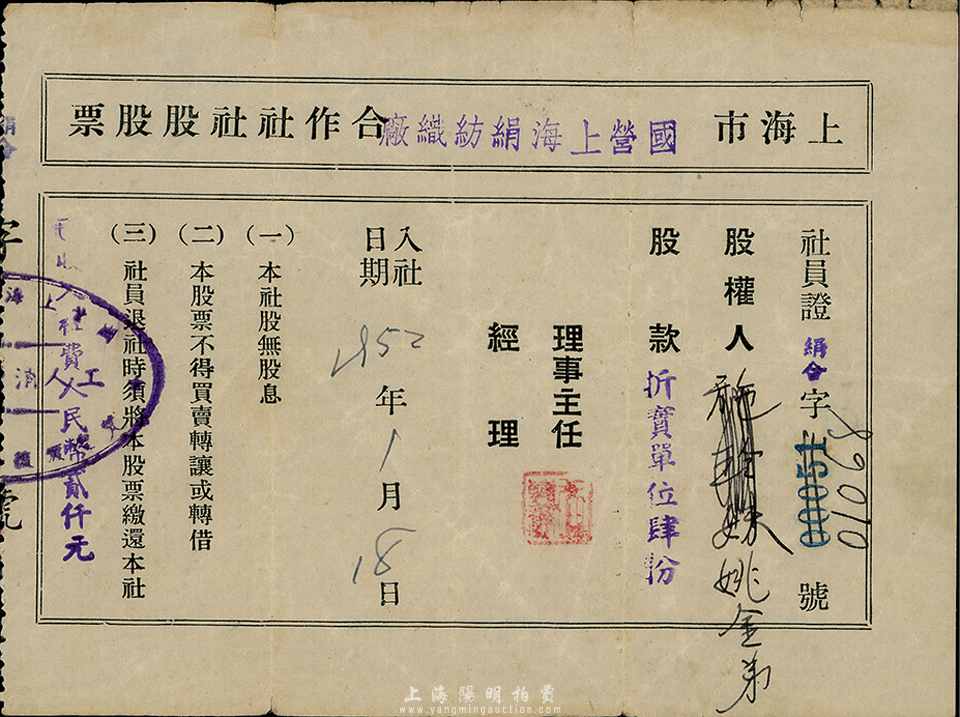 上海市國營上海絹紡織廠合作社社股股票
社員證絹合字00051號
01068
股權人 姚金弟
股款折實單位肆份
理事主任
經理
入社日期1952年1月18日
(一)本社股無股息
(二)本股票不得買賣轉讓或轉借
(三)社員退社時須將本股票繳還本社
入社費人民幣貳仟元
絹合
字
號
上海陽明拍賣
www.yangmingauction.com